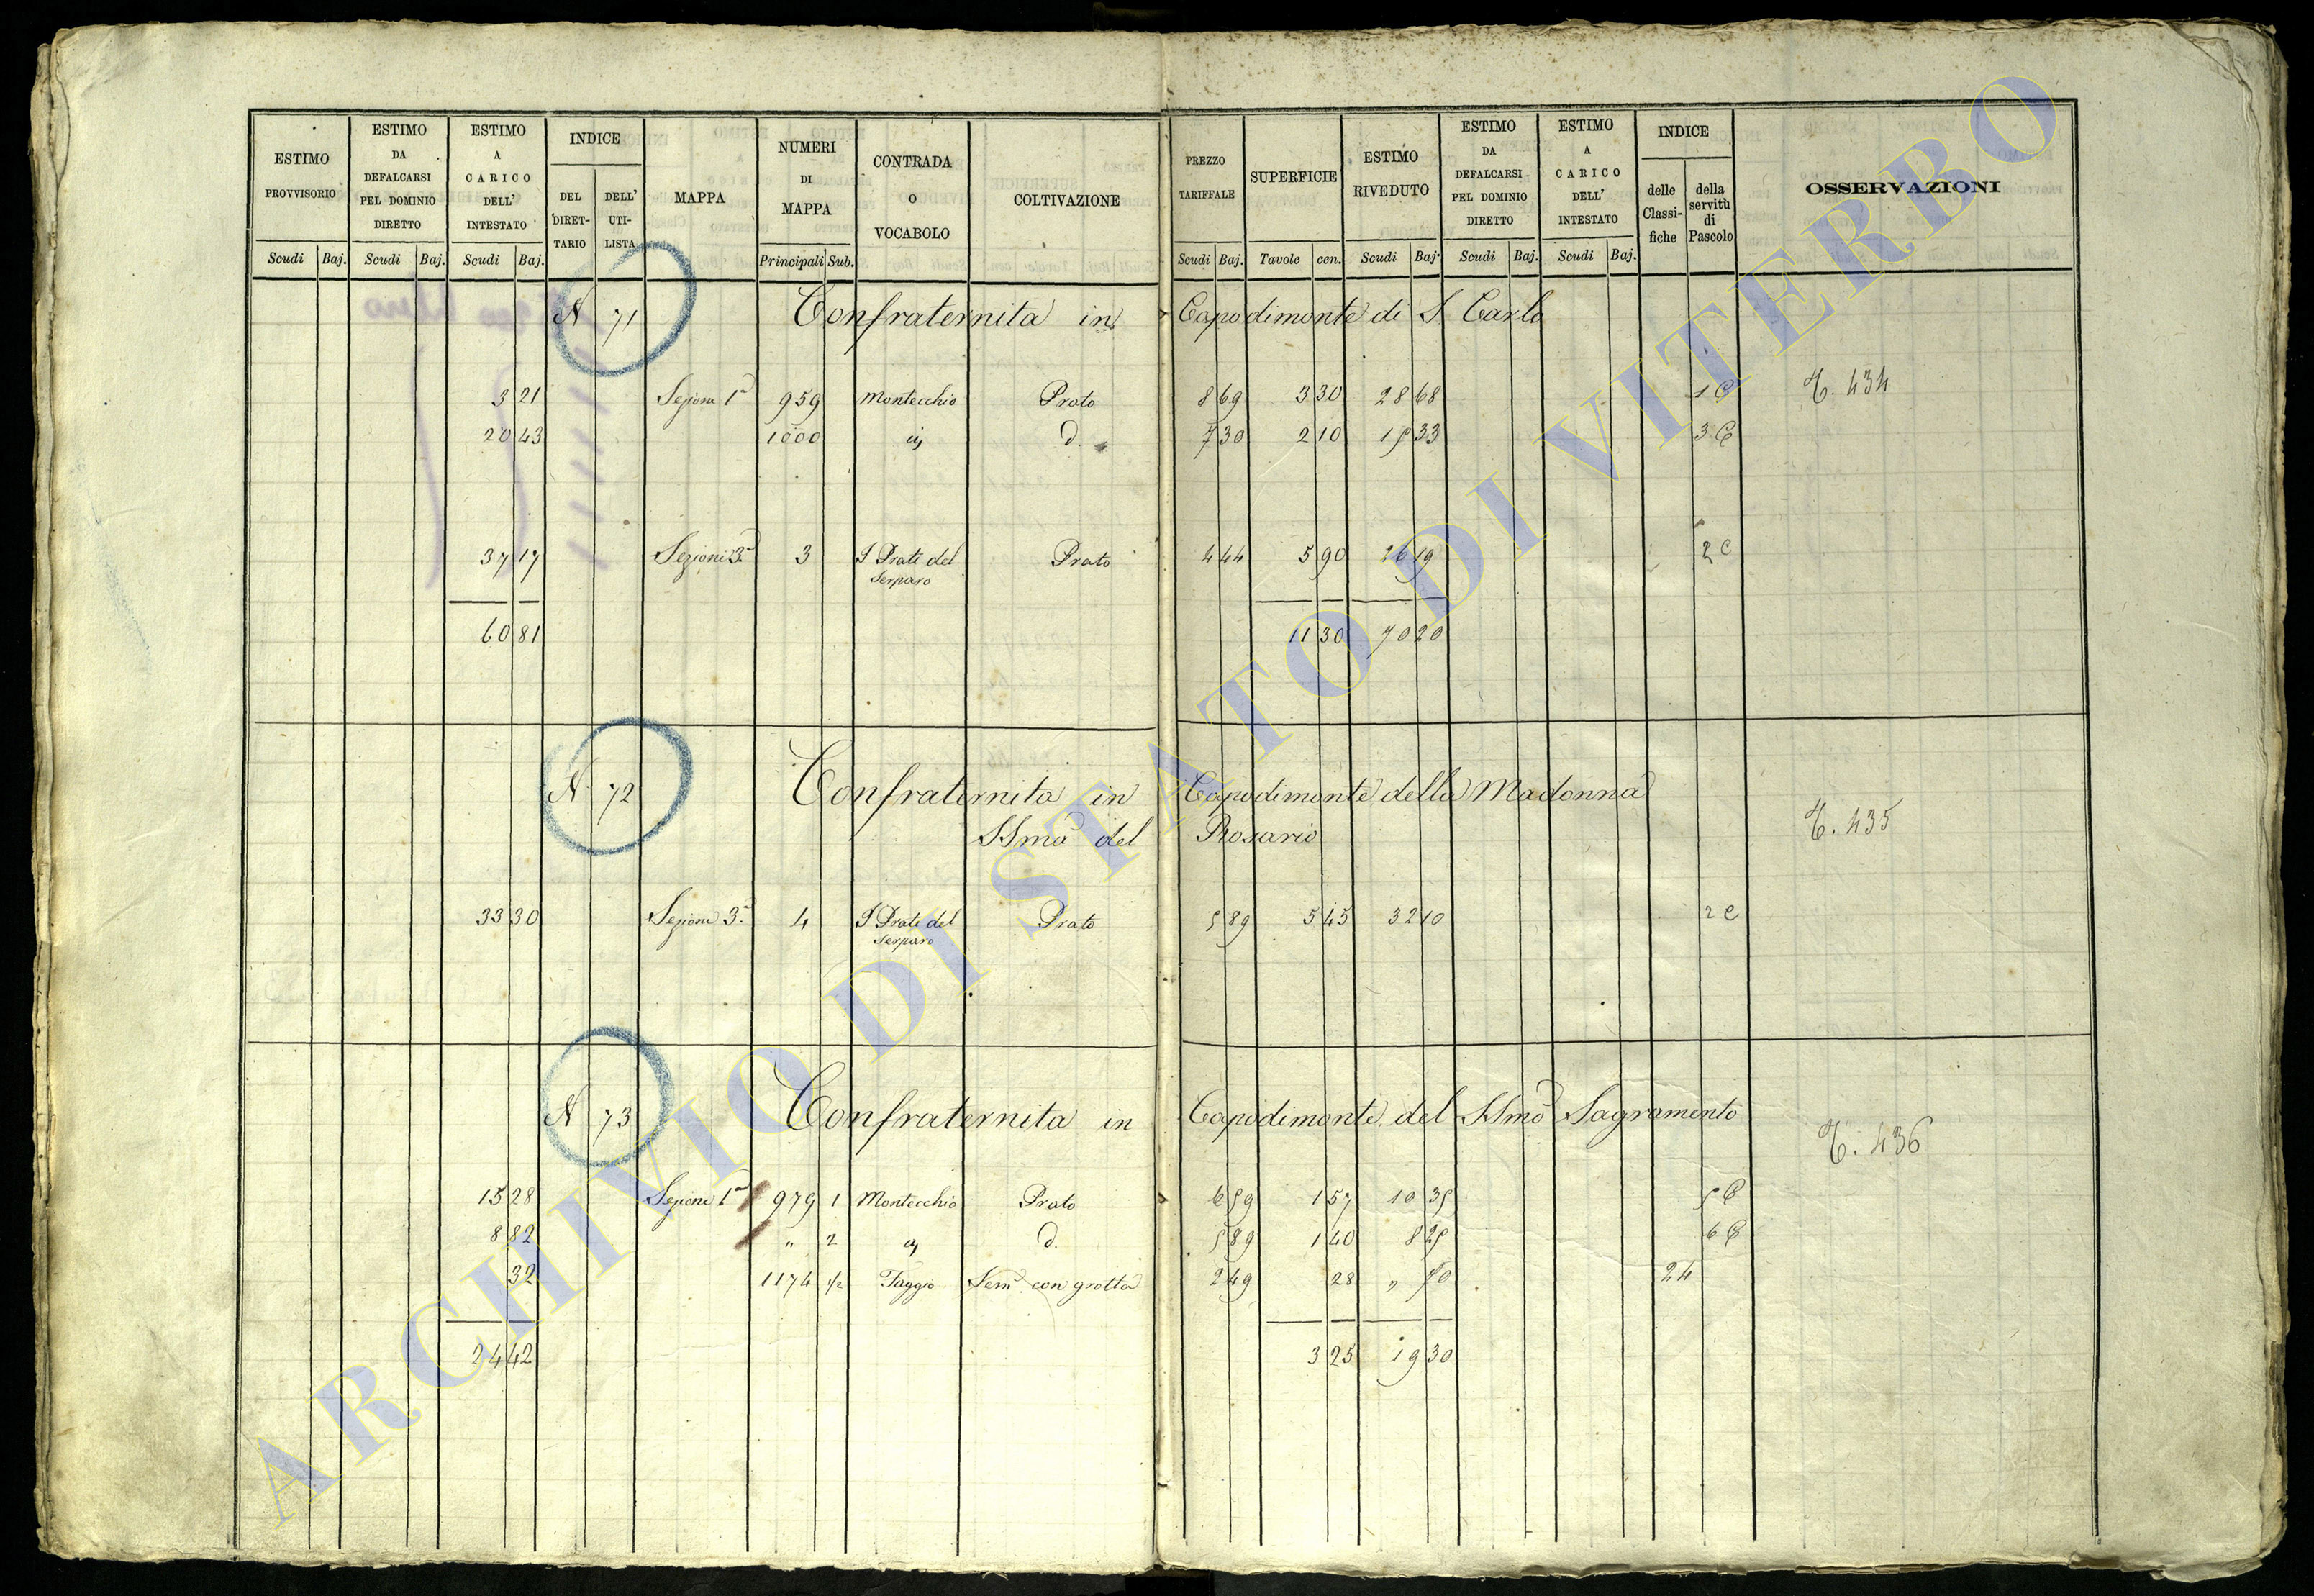 ESTIMO PROVVISORIO | ESTIMO DA DEFALCARSI PEL DOMINIO DIRETTO | ESTIMO A CARICO DELL' INTESTATO | INDICE DEL DIRETTARIO | DELL' UTILISTA | MAPPA | NUMERI DI MAPPA | CONTRADA O VOCABOLO | COLTIVAZIONE | PREZZO TARIFFALE | SUPERFICIE | ESTIMO RIVEDUTO | ESTIMO DA DEFALCARSI PEL DOMINIO DIRETTO | ESTIMO A CARICO DELL' INTESTATO | INDICE delle Classifiche | della servitù di Pascolo | OSSERVAZIONI
Scudi Baj. Scudi Baj. Scudi Baj. Principali Sub. Scudi Baj. Tavole cen. Scudi Baj. Scudi Baj. Scudi Baj.
N 71 Confraternita in Capodimonte di S Carlo
3 21 Sezione 1ª 959 Montecchio Prato 8 69 3 30 28 68 1 C T. 434
20 43 1000 d. 7 30 2 10 15 33 3 C
37 17 Sezione 3ª 3 I Prati del Serparo Prato 4 44 5 90 26 19 2 C
60 81 11 30 70 20
N 72 Confraternita in Capodimonte della Madonna
SSma del Rosario T. 435
33 30 Sezione 3ª 4 I Prati del Serparo Prato 5 89 5 45 32 10 2 C
N 73 Confraternita in Capodimonte del SSmo Sagramento T. 436
15 28 Sezione 1ª 979 1 Montecchio Prato 6 59 1 57 10 35 5 C
8 82 " 2 d. 5 89 1 40 8 25 6 C
32 1174 1/2 Taggio Sem. con grotta 2 49 28 " 70 24
24 42 3 25 19 30
ARCHIVIO DI STATO DI VITERBO